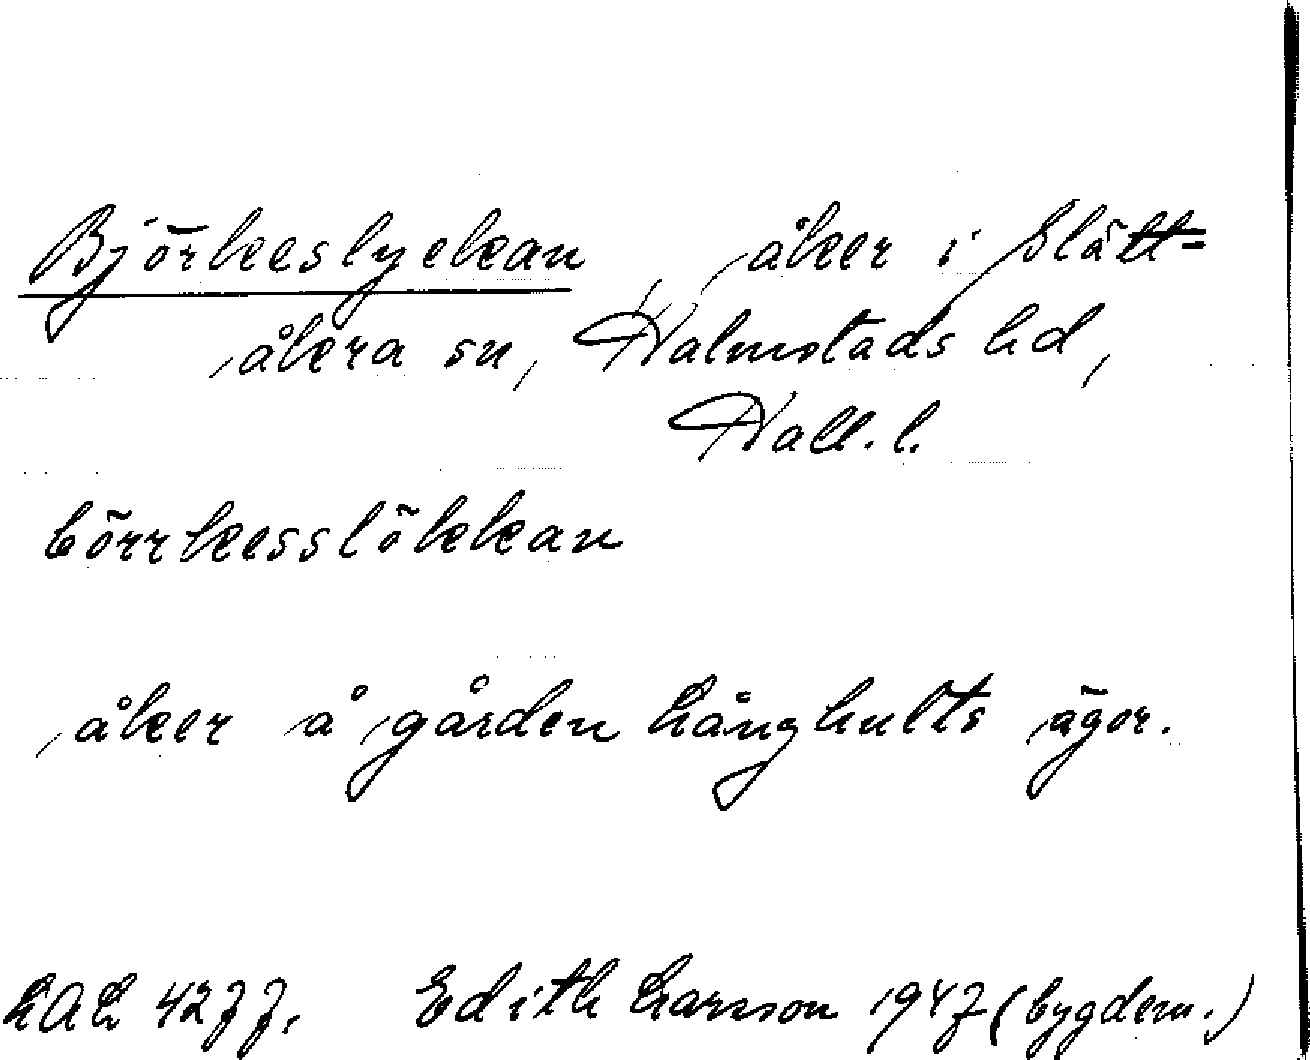 Björkeslyckan, åker i Slätt-
åkra sn, Halmstads hd,
Hall. l.
börrkesslökkan
åker å gården Långhults ägor.
LAL 4277. Edith Larsson 1947 (bygdem.)